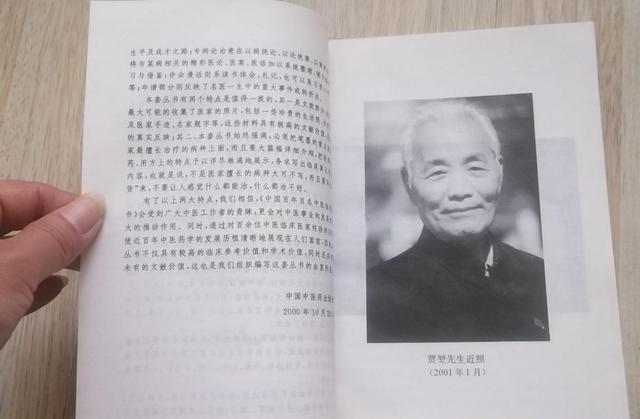 生平及成才之路；专病论治意在以病统论、以论统案、以案
得与某病相关的精彩医论、医案、医话加以系统整理，便于
习与借鉴；诊余漫话则系读书体会、札记，也可以是习医
等；年谱部分则反映了名医一生中的重大事件或转折点。
本套丛书有两个特点是值得一提的，其一是文献
最大可能的收集了医家的照片，包括一些珍贵的生活
及医家手迹、名家题字等，这些材料具有极高的文献价值，
的真实反映；其二，本套丛书始终强调，必须把笔墨的重点
家最擅长治疗的病种上面，而且要大篇幅详细介绍，把医家
药、用方上的特点予以详尽淋漓地展示，务求写出临床真正
内容，也就是说，不是医家擅长的病种大可不写，而且要写
货”来，不要让人感觉什么都能治，什么都治不好。
有了以上两大特点，我们相信，《中国百年百名中医临床
书》会受到广大中医工作者的青睐，更会对中医事业的发展
大的推动作用。同时，通过对百余位中医临床医家经验的
使近百年中医药学的发展历程清晰地展现在人们面前，
丛书不仅具有较高的临床参考价值和学术价值，同时还具有
未有的文献价值，这也是我们组织编写这套丛书的由衷所
中国中医药出版
2000年10月28
贾堃先生近照
（2001年1月）